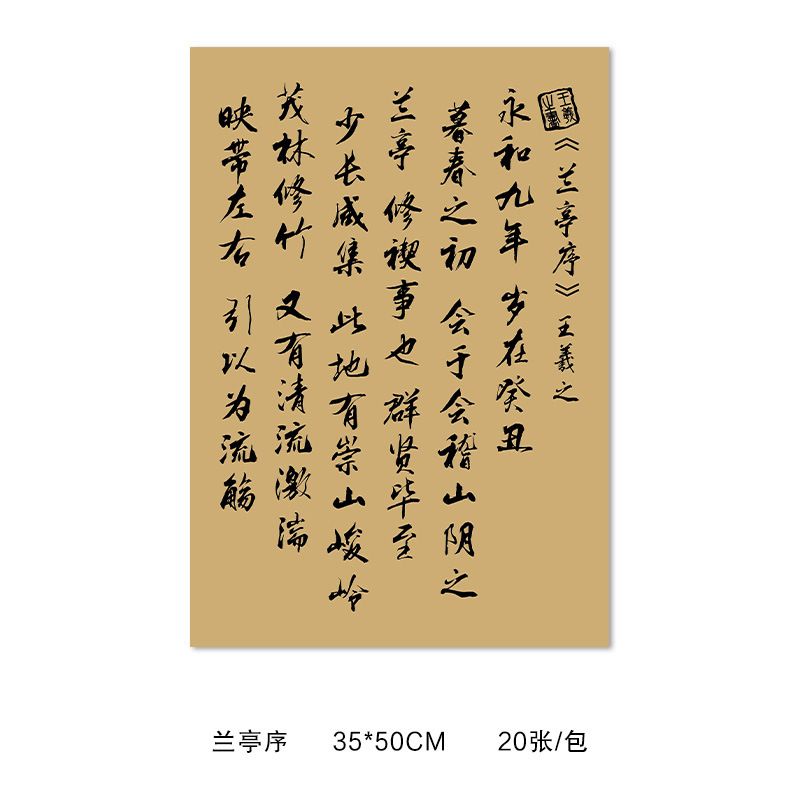 王羲之書
《兰亭序》 王羲之
永和九年 岁在癸丑
暮春之初 会于会稽山阴之
兰亭 修禊事也 群贤毕至
少长咸集 此地有崇山峻岭
茂林修竹 又有清流激湍
映带左右 引以为流觞
兰亭序 35*50CM 20张/包